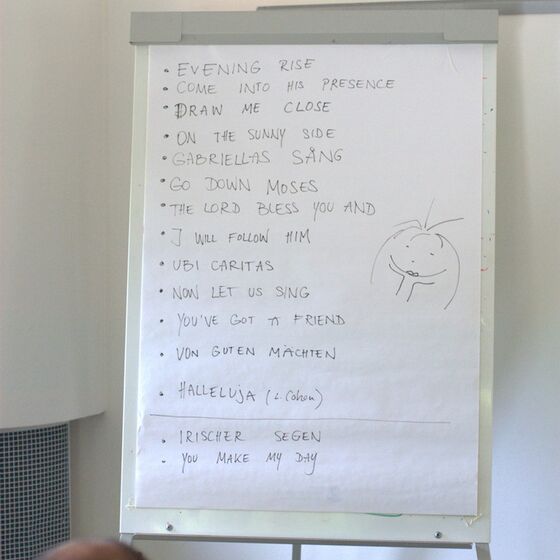 • EVENING RISE
• COME INTO HIS PRESENCE
• DRAW ME CLOSE
• ON THE SUNNY SIDE
• GABRIELLAS SÅNG
• GO DOWN MOSES
• THE LORD BLESS YOU AND
• I WILL FOLLOW HIM
• UBI CARITAS
• NOW LET US SING
• YOU'VE GOT A FRIEND
• VON GUTEN MÄCHTEN
• HALLELUJA (L. Cohen)
• IRISCHER SEGEN
• YOU MAKE MY DAY